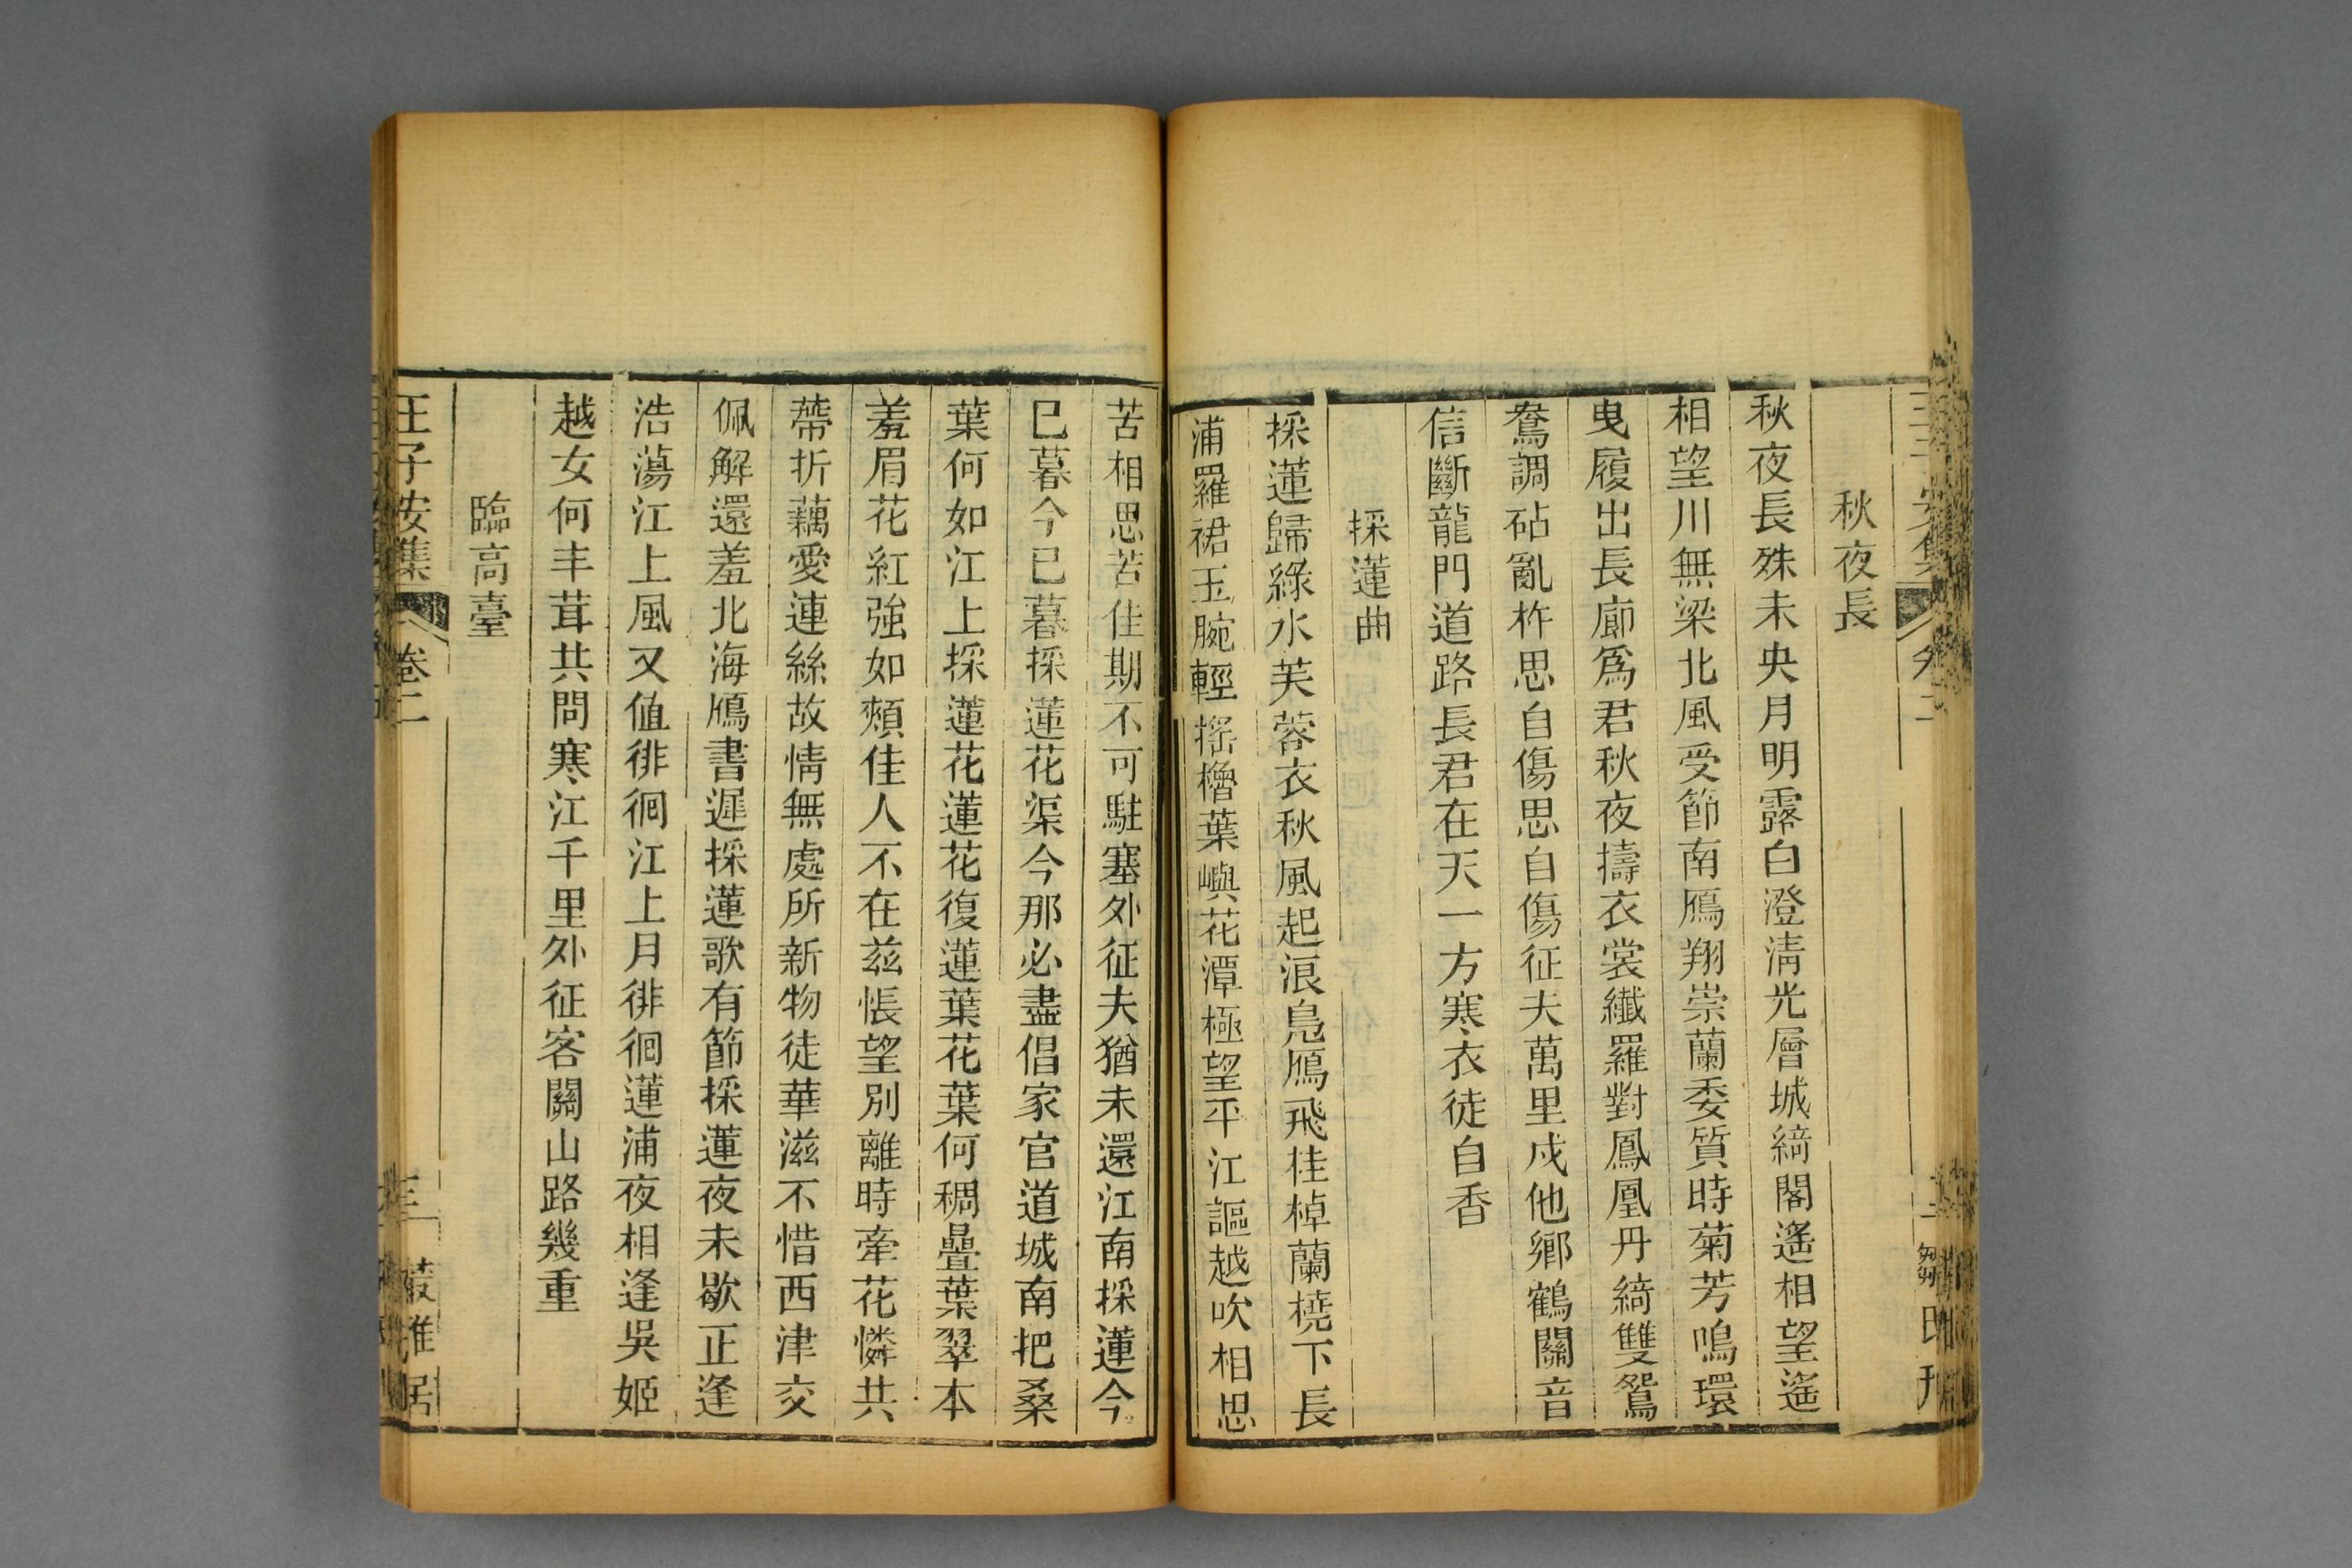 秋夜長
秋夜長殊未央月明露白澄清光層城綺閣遙相望遙
相望川無梁北風受節南鴈翔崇蘭委質時菊芳鳴環
曳履出長廊爲君秋夜擣衣裳纖羅對鳳凰丹綺雙鴛
鴦調砧亂杵思自傷思自傷征夫萬里戍他鄉鶴關音
信斷龍門道路長君在天一方寒衣徒自香
採蓮曲
採蓮歸綠水芙蓉衣秋風起浪鳧鴈飛桂棹蘭橈下長
浦羅裙玉腕輕搖櫓葉嶼花潭極望平江謳越吹相思
苦相思苦佳期不可駐塞外征夫猶未還江南採蓮今
已暮今已暮採蓮花渠今那必盡倡家官道城南把桑
葉何如江上採蓮花蓮花復蓮葉花葉何稠疊葉翠本
羞眉花紅強如頰佳人不在茲悵望別離時牽花憐共
蔕折藕愛連絲故情無處所新物徒華滋不惜西津交
佩解還羞北海鴈書遲採蓮歌有節採蓮夜未歇正逢
浩蕩江上風又値徘徊江上月徘徊蓮浦夜相逢吳姬
越女何丰茸共問寒江千里外征客關山路幾重
臨高臺
王子安集 卷二 三 叢雅居